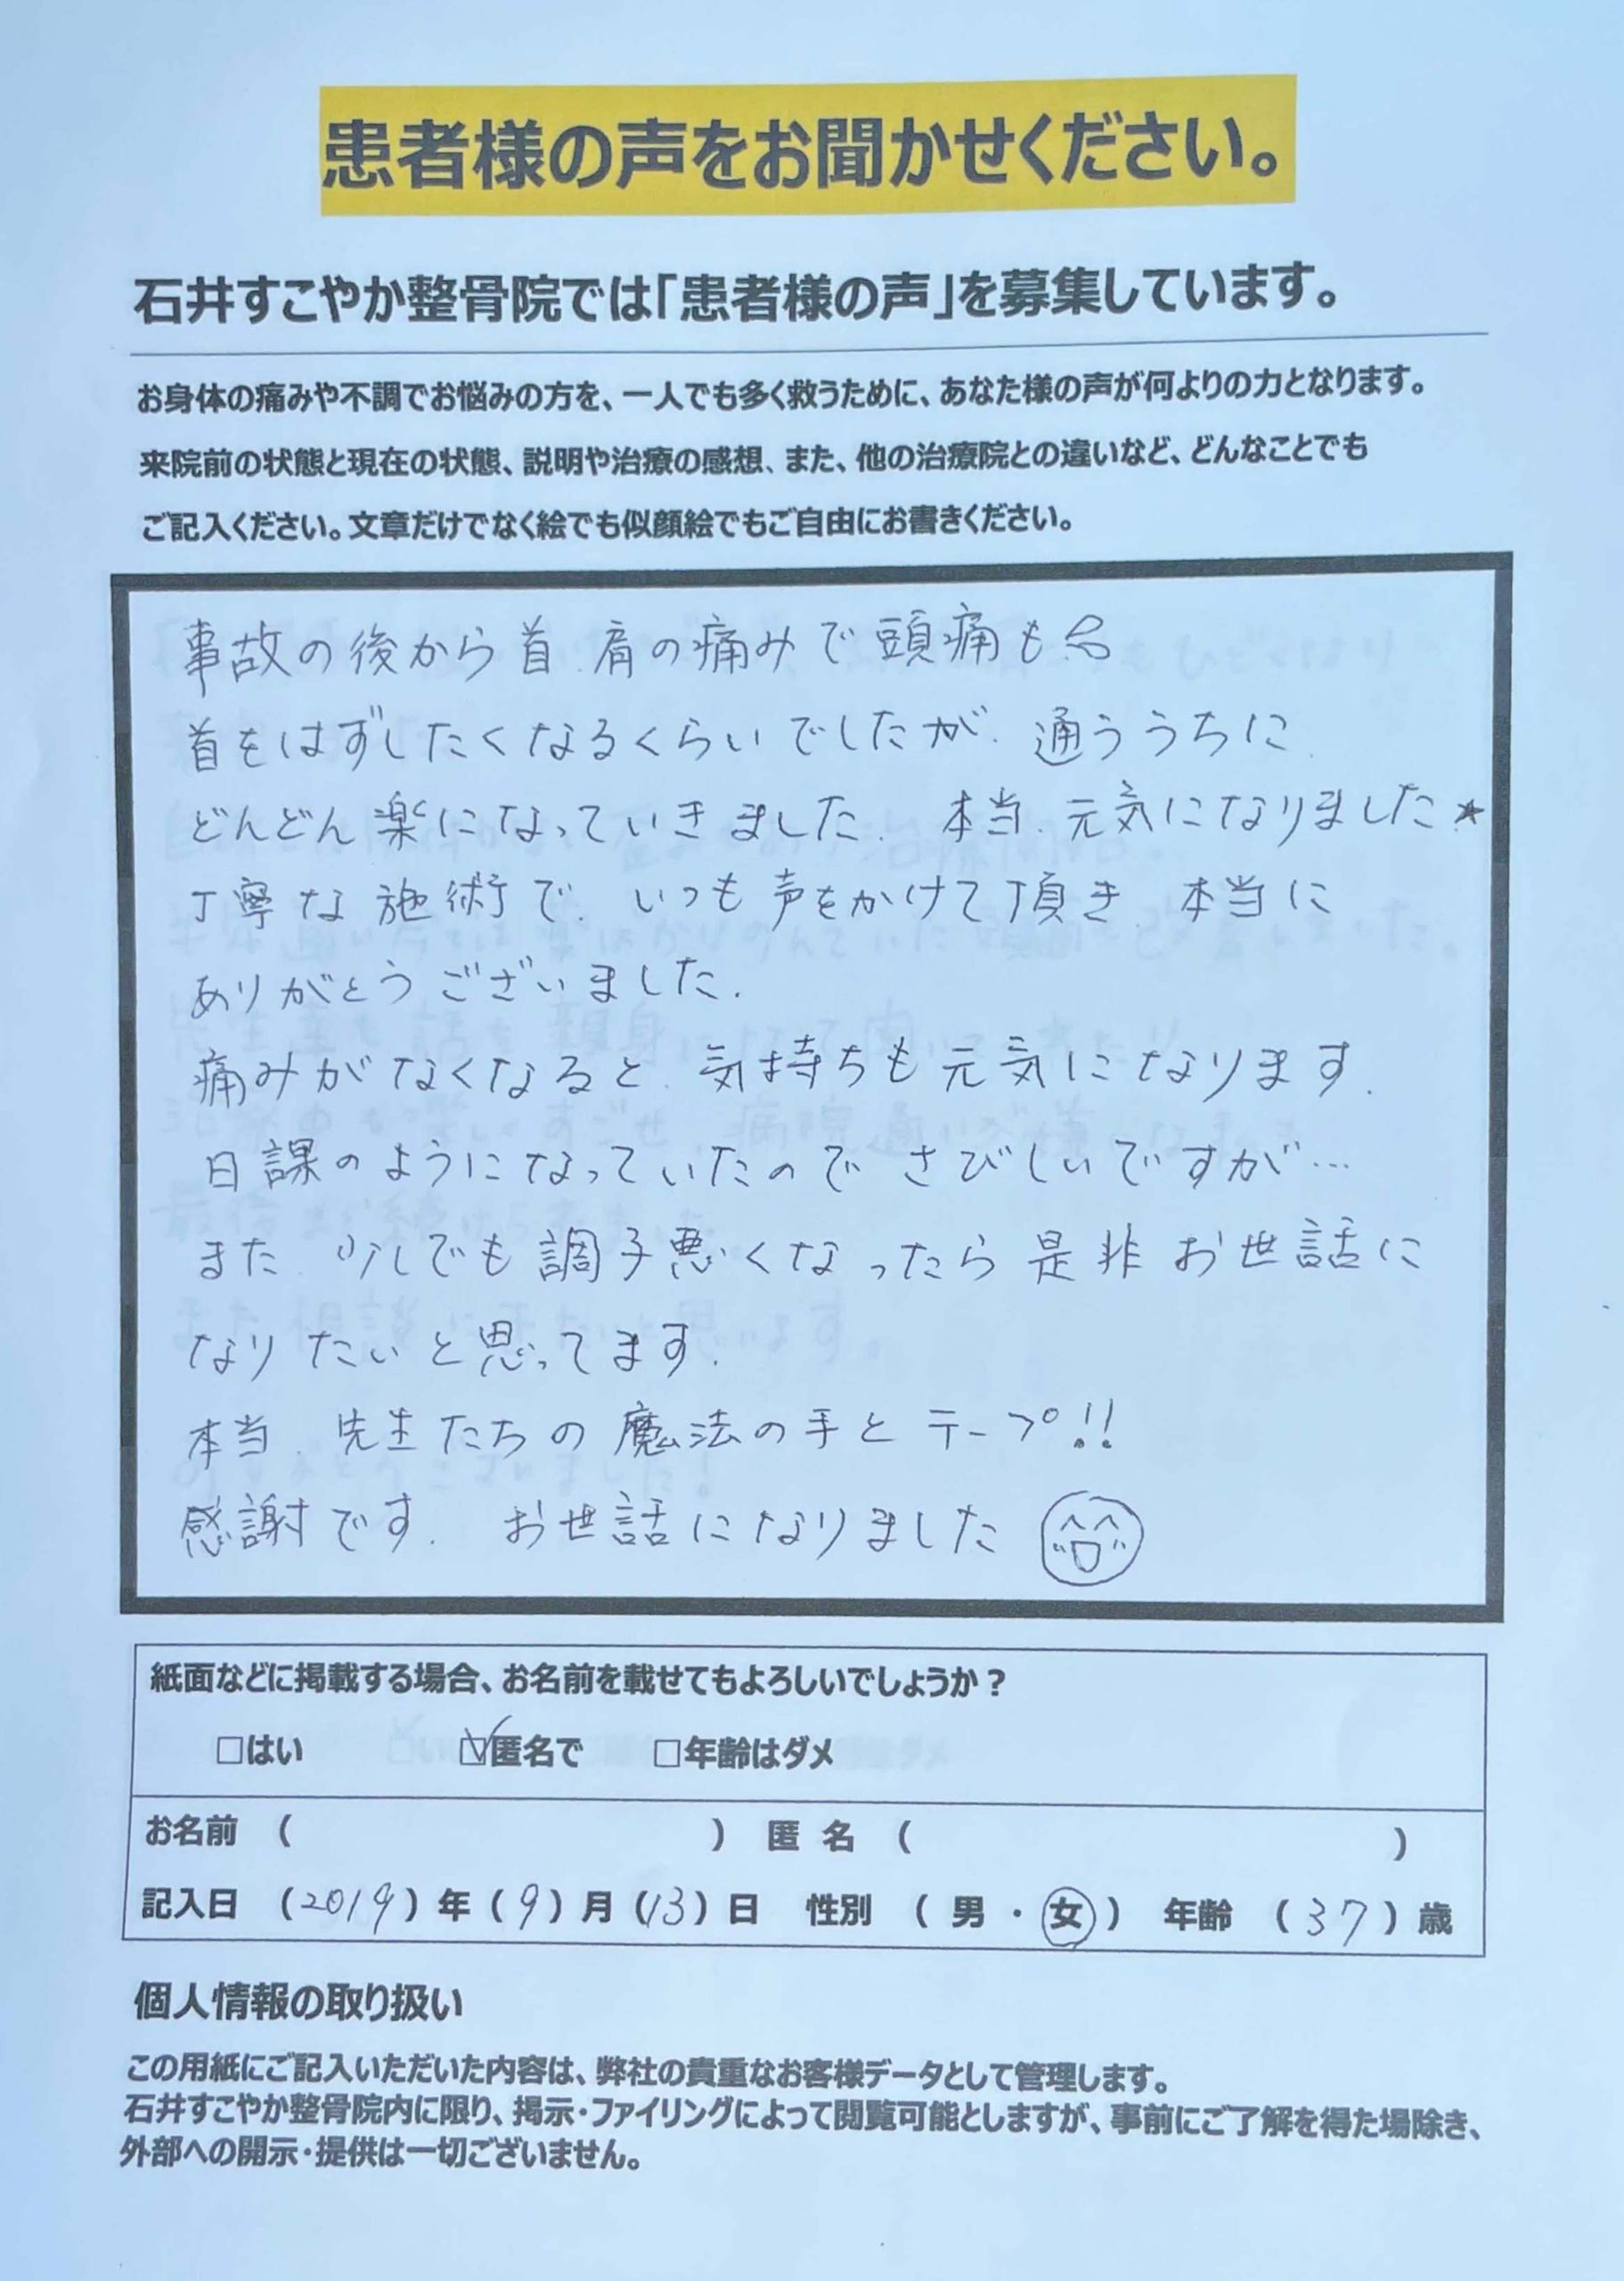 患者様の声をお聞かせください。
石井すこやか整骨院では「患者様の声」を募集しています。
お身体の痛みや不調でお悩みの方を、一人でも多く救うために、あなた様の声が何よりの力となります。
来院前の状態と現在の状態、説明や治療の感想、また、他の治療院との違いなど、どんなことでも
ご記入ください。文章だけでなく絵でも似顔絵でもご自由にお書きください。
事故の後から首.肩の痛みで頭痛も
首をはずしたくなるくらいでしたが.通ううちに
どんどん楽になっていきました. 本当.元気になりました★
丁寧な施術で.いつも声をかけて頂き 本当に
ありがとうございました.
痛みがなくなると.気持ちも元気になります.
日課のようになっていたので さびしいですが…
また.少しでも調子悪くなったら是非お世話に
なりたいと思ってます.
本当.先生たちの魔法の手とテープ!!
感謝です. お世話になりました
紙面などに掲載する場合、お名前を載せてもよろしいでしょうか？
□はい ☑匿名で □年齢はダメ
お名前 （ ） 匿 名 （ ）
記入日 （2019）年（9）月（13）日 性別 （ 男 ・ 女 ） 年齢 （37）歳
個人情報の取り扱い
この用紙にご記入いただいた内容は、弊社の貴重なお客様データとして管理します。
石井すこやか整骨院内に限り、掲示・ファイリングによって閲覧可能としますが、事前にご了解を得た場除き、
外部への開示・提供は一切ございません。